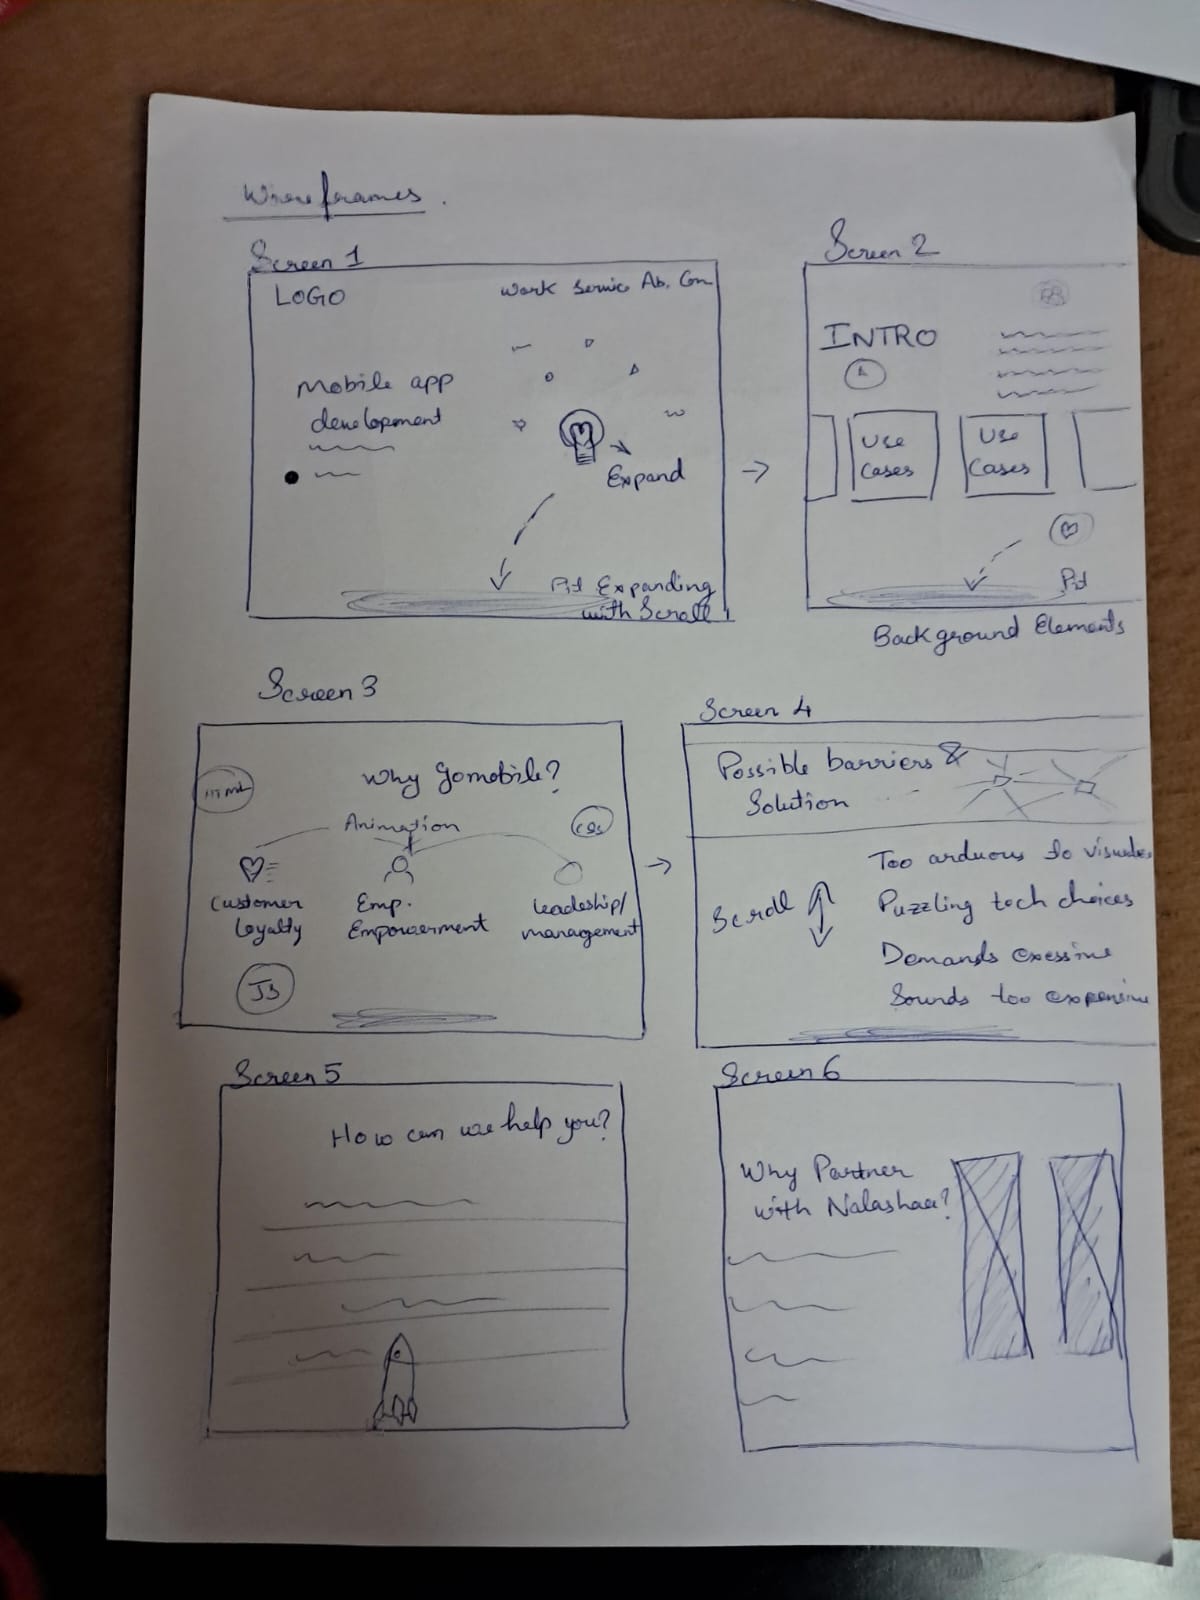 Wireframes.
Screen 1
LOGO
Work Service Ab. Con
Mobile app
development
Expand
Pit Expanding
with Scroll
Screen 2
INTRO
Use
Cases
Use
Cases
Pit
Background Elements
Screen 3
Why Gomobile?
Animation
css
Customer
Loyalty
Emp.
Empowerment
Leadeship/
management
JS
Screen 4
Possible barriers &
Solution
Scroll
Too arduous to
Puzzling tech choices
Demands
Sounds too expensive
Screen 5
How can we help you?
Screen 6
Why Partner
with Nalashaa?